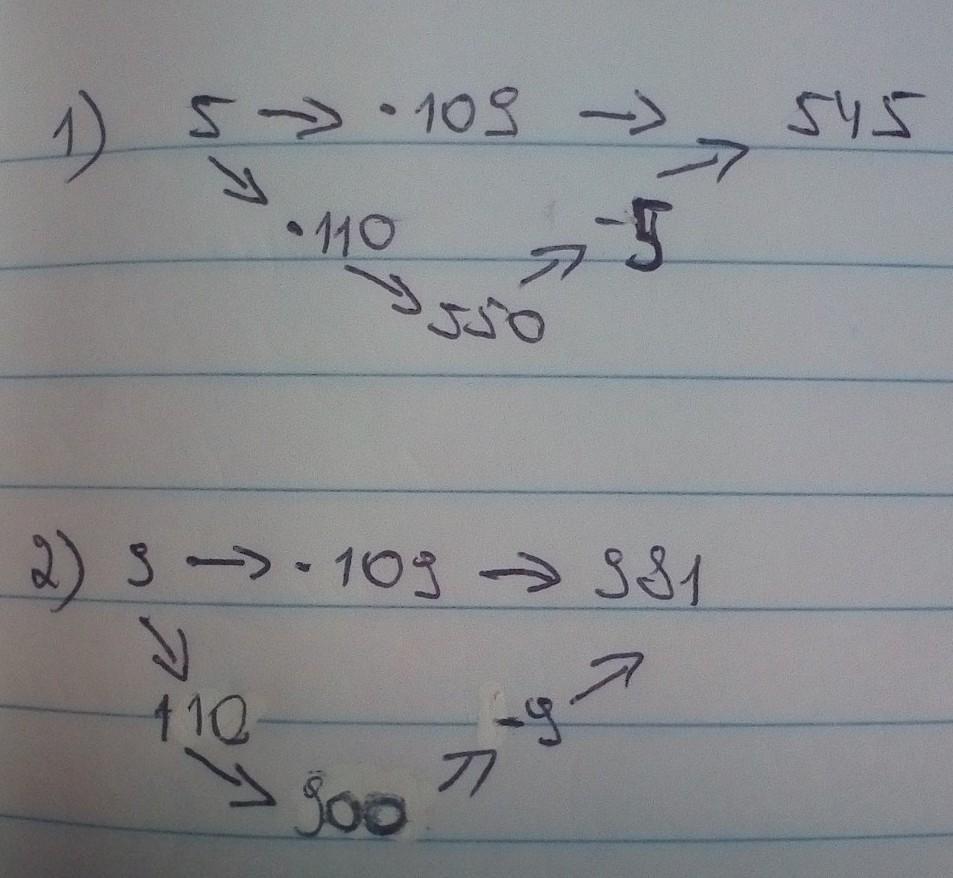 1) 5 → · 109 → 545
· 110 -5
550
2) 9 → · 109 → 981
110 -9
900